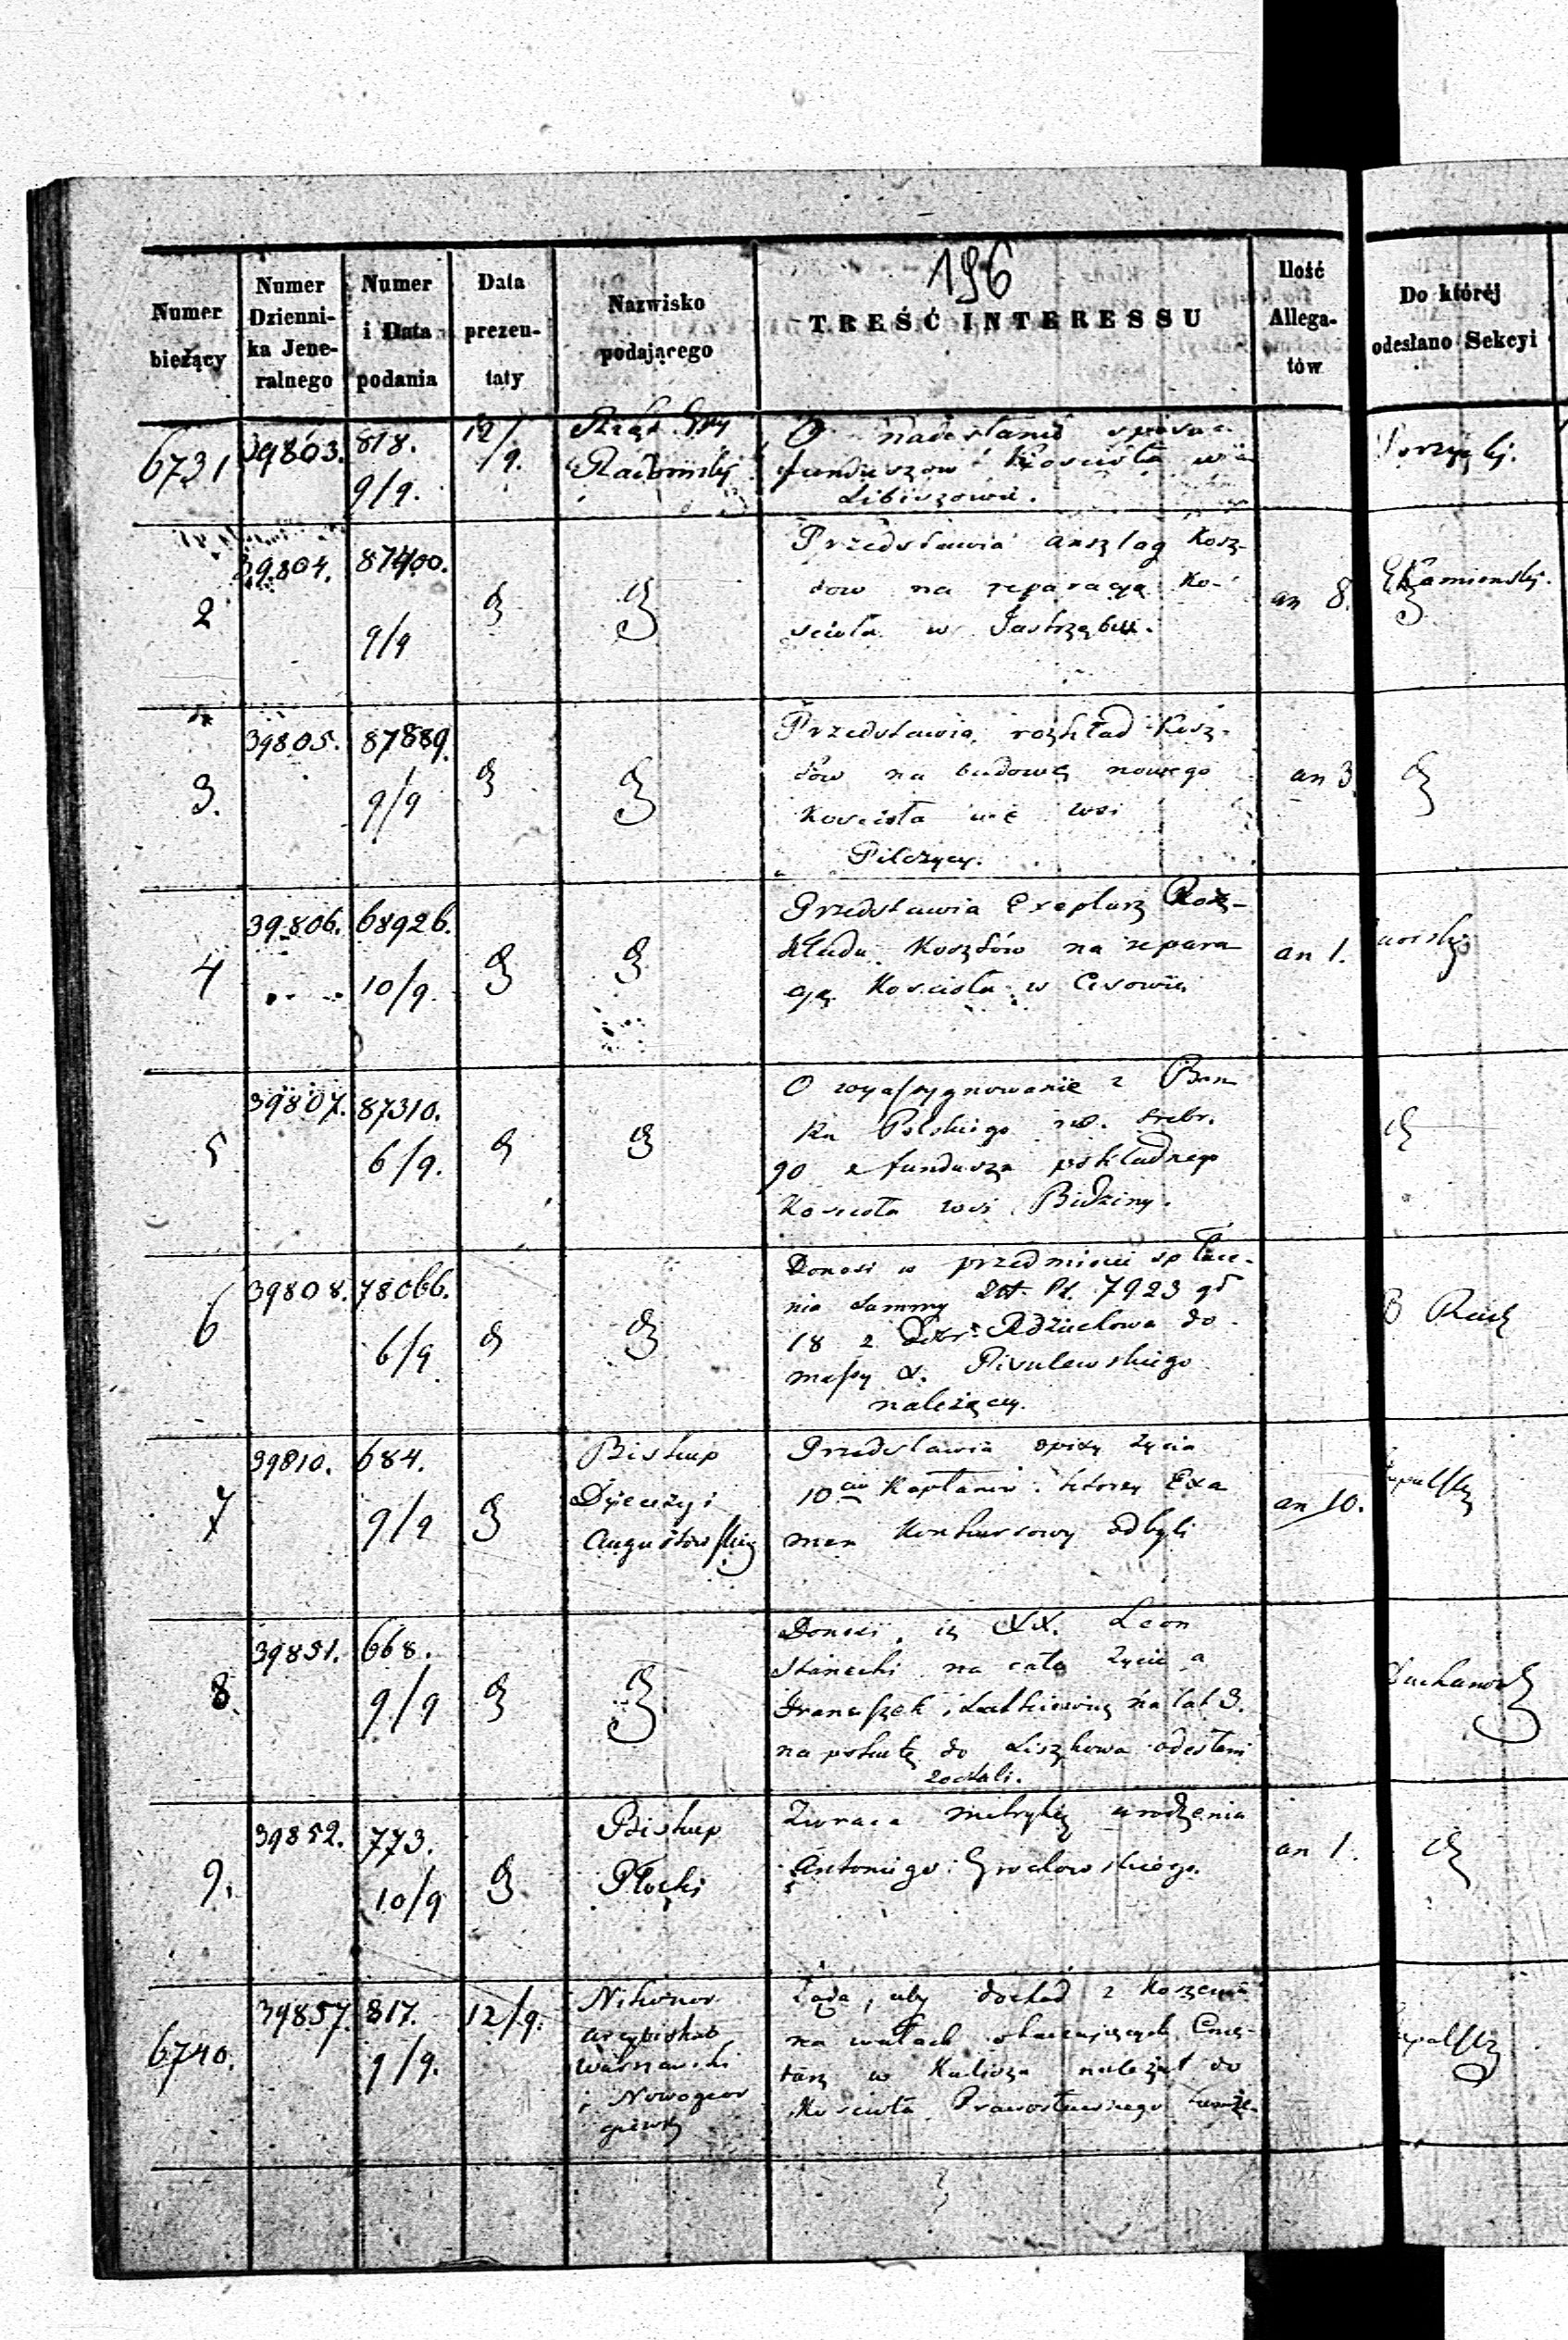 196
Numer bieżący
Numer Dzienni- ka Jene- ralnego
Numer i Data podania
Data prezen- taty
Nazwisko podającego
TREŚĆ INTERESSU
Ilość Allega- tów
Do któréj odesłano Sekcyi
6731 39803. 818. 9/9. 12/9.
Rząd Gny
Radomski
O nadesłanie spisu
funduszów Kościoła w
Libiszowie.
2 39.804. 87400. 9/9
Przedstawia anszlag Kosz-
tow na reparacyą Ko-
scioła w Jastrzębiu.
an 8. Kamienski.
3. 39805. 87889. 9/9
Przedstawia rozkład Kosz-
tów na budowę nowego
Kościoła we wsi
Pilczycy.
an 3
4 39.806. 68926. 10/9.
Przedstawia Exeplarz Roz-
kładu Kosztów na repara
cyą Kościoła w Cisowie
an 1.
5 39807. 87310. 6/9.
O wyassygnowanie z Ban
ku Polskiego rs. srebr.
90 z funduszu pokładnego
Kościoła wsi Bidziny.
6 39808. 78066. 6/9
Donosi w przedmiocie spłace-
nia Summy Zł. Pl. 7923 gr
18 z Dóbr Radziechowa do
massy X. Pisulewskiego
należącey.
7 39810. 684. 9/9
Biskup
Dyecezyi
Augustowskiey
Przedstawia opisy życia
10ciu Kapłanów którzy Exa
men Konkursowy odbyli
an 10.
8. 39851. 668. 9/9
Donosi, iż XX. Leon
Stanecki na całe życie a
Franciszek na lat 3.
na pokutę do Liszkowa odesłani
zostali.
9. 39852. 773. 10/9
Biskup
Płocki
Zwraca metrykę urodzenia
Antoniego Grochowskiego.
an 1.
6740. 39857. 817. 9/9. 12/9.
Nikonor
arcybiskub
Warszawski
i Nowogeor
giewsky
Żąda, aby dochód z Koszenia
na wałach otaczających Cmę-
tarz w Kaliszu należał do
Kościoła Prawosławnego tamże.